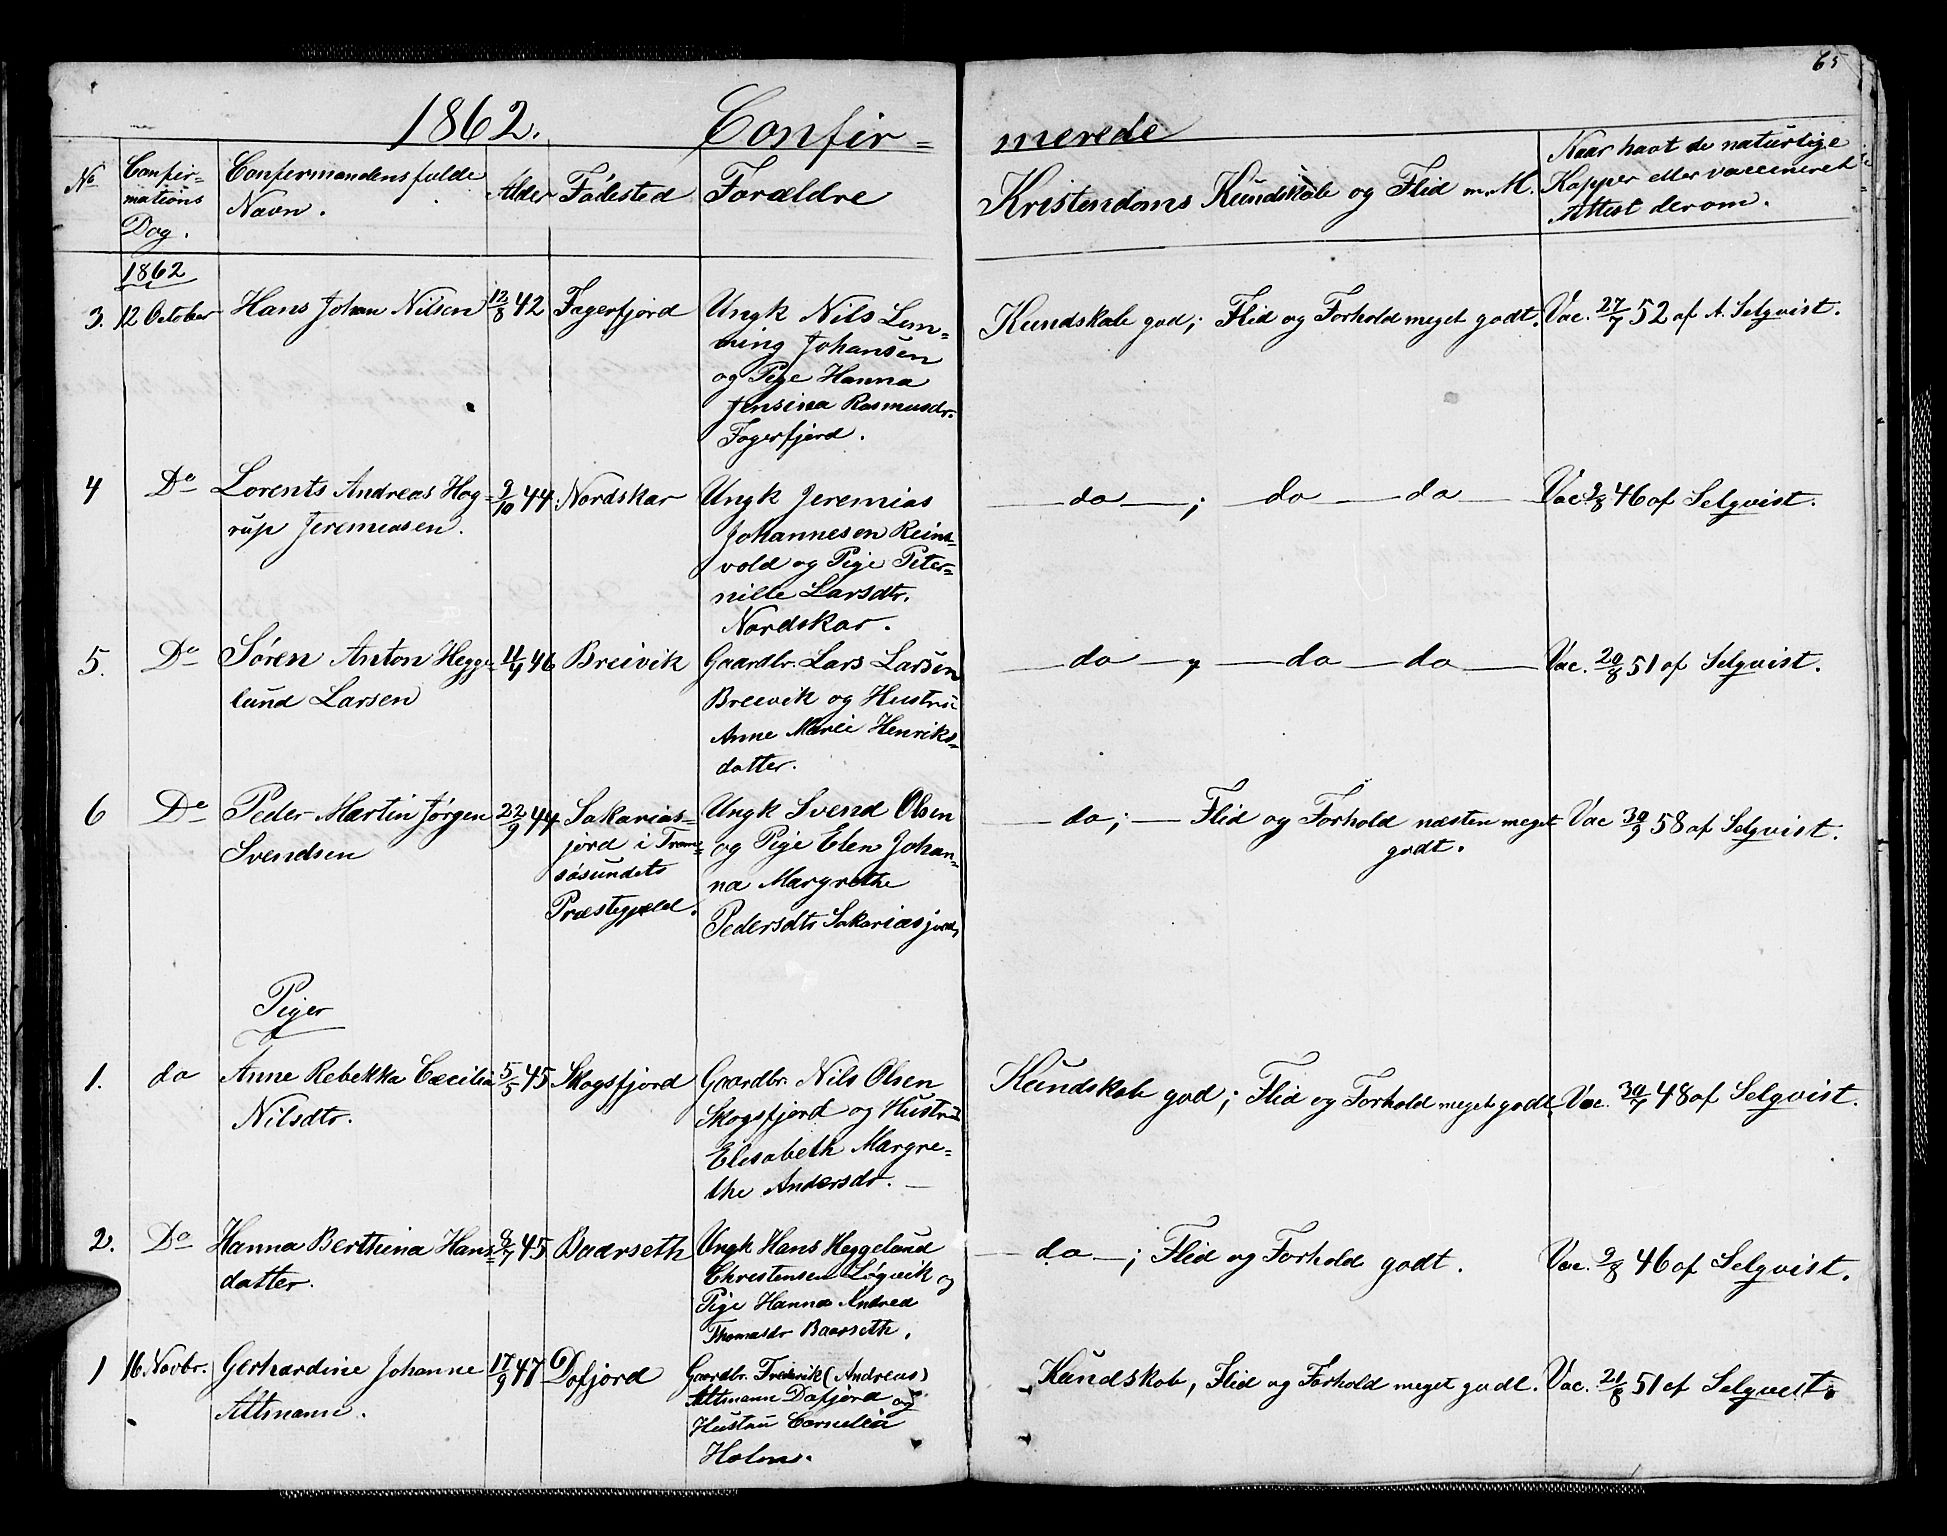 65
1862. Confir= merede
No Confir=mations Dag. Confermandens fulde Navn. Alder Fødested Forældre Kristendoms Kundskab og Flid m.M. Naar havt de naturlige Kopper eller vaccineret Attest derom.
1862
3. 12 October Hans Johan Nilsen 12/8 42 Fagerfjord Ungk Nils Lem= Kundskab god; Flid og Forhold meget godt. Vac. 27/7 52 af A. Selqvist.
ming Johansen
og Pige Hanna
Jensina Rasmusdr.
Fagerfjord.
4 Do Lorents Andreas Hag= 9/10 44 Nordskar Ungk Jeremias — do —; — do — do — Vac 9/8 46 af Selqvist.
rup Jeremiasen. Johannesen Reins=
vold og Pige Peter=
nille Larsdtr.
Nordskar.
5. Do Søren Anton Hegge= 11/9 46 Breivik Gaardbr. Lars Larsen — do — , — do — do — Vac. 20/8 51 af Selqvist.
lund Larsen Breivik og Hustru
Anne Marie Henriks=
datter.
6 Do Peder Martin Jørgen 22/9 44 Sakarias= Ungk Svend Olsen — do; — Flid og Forhold næsten meget Vac 30/9 58 af Selqvist.
Svendsen jord i Trom= og Pige Elen Johan= godt.
søsundets na Margrethe
Præstegjæld. Pedersdtr Sakariasjord,
Piger
1. do Anne Rebekka Cæcilia 5/5 45 Skogsfjord Gaardbr. Nils Olsen Kundskab god; Flid og Forhold meget godt Vac. 30/7 48 af Selqvist.
Nilsdtr. Skogsfjord og Hustru
Elisabeth Margre=
the Andersdr. —
2. Do Hanna Berthina Hans= 8/7 45 Baarseth Ungk Hans Heggelund — do —; Flid og Forhold godt. Vac. 9/8 46 af Selqvist.
datter. Christensen Løgvik og
Pige Hanna Andrea
Thomasdr Baarseth.
1 16. Novbr. Gerhardine Johanne 17/9 47 Dafjord Gaardbr. Frederik (Andreas) Kundskab, Flid og Forhold meget godt. Vac. 21/8 51 af Selqvist.
Altmann. Altmann Dafjord og
Hustru Cornelia
Holms.